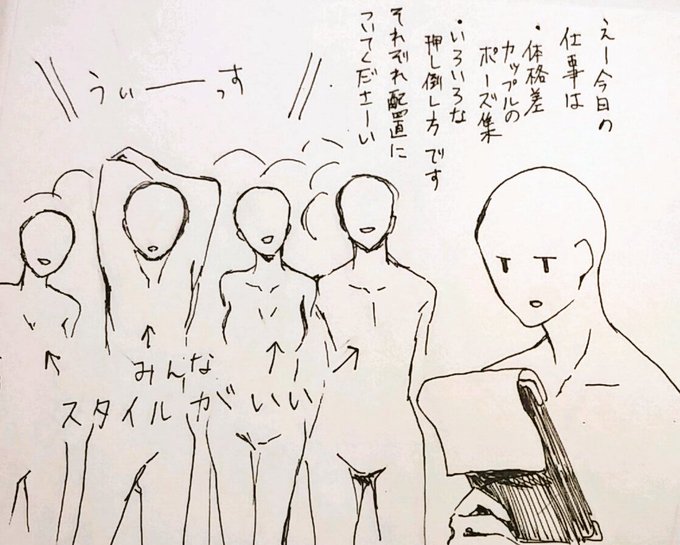 えー今日の
仕事は
・体格差
カップルの
ポーズ集
・いろいろな
押し倒し方です
それぞれ配置に
ついてくださーい
うぃーーっす
みんな
スタイルがいい